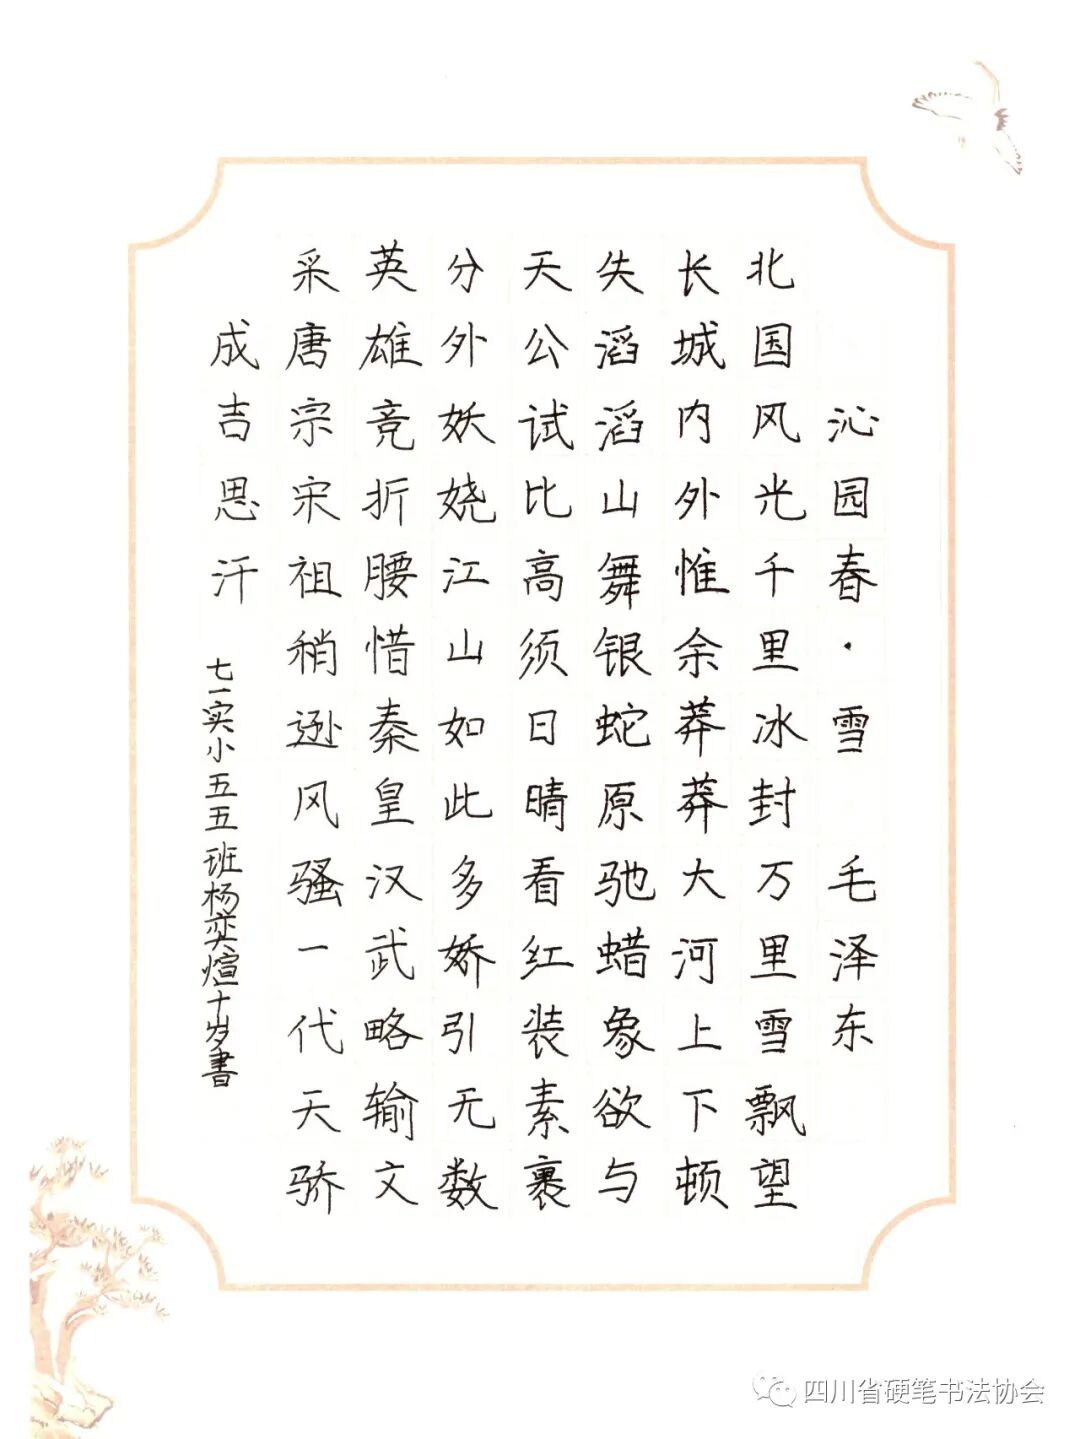 沁园春·雪 毛泽东
北国风光千里冰封万里雪飘望
长城内外惟余莽莽大河上下顿
失滔滔山舞银蛇原驰蜡象欲与
天公试比高须日晴看红装素裹
分外妖娆江山如此多娇引无数
英雄竞折腰惜秦皇汉武略输文
采唐宗宋祖稍逊风骚一代天骄
成吉思汗
七一实小五五班杨奕煊十岁书
四川省硬笔书法协会